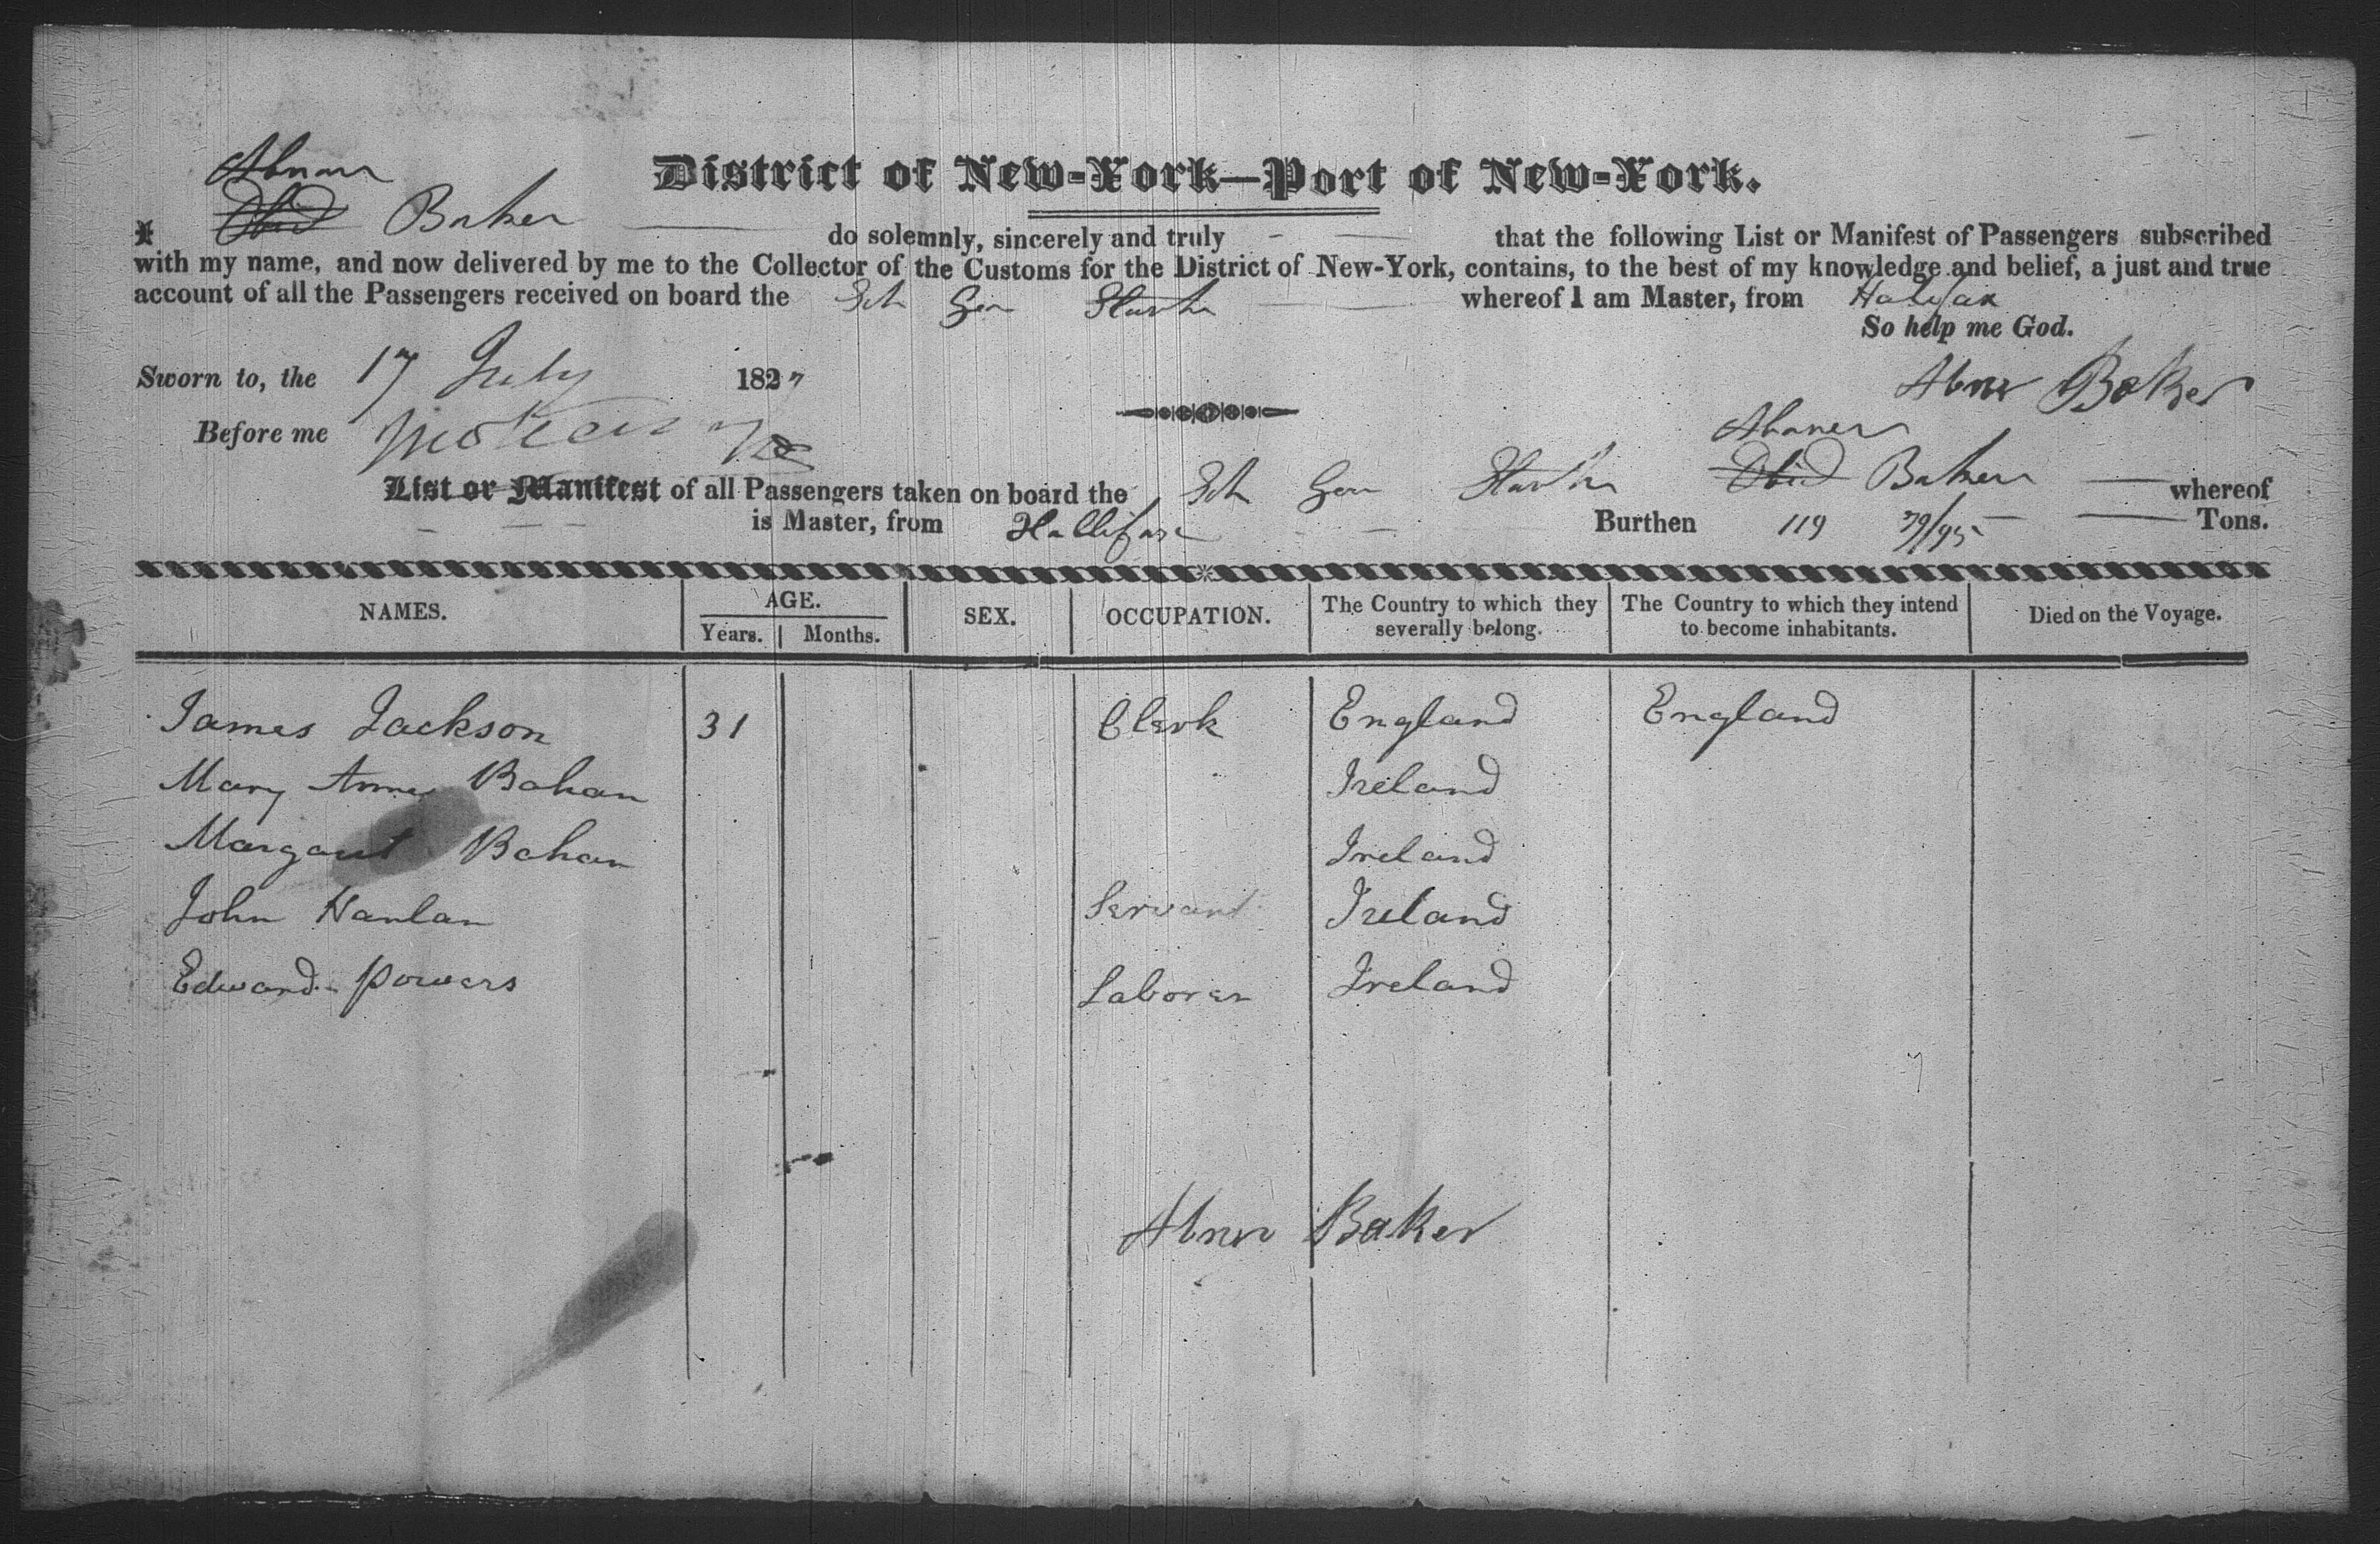 District of New-York—Port of New-York.
Abner
I Obed Baker do solemnly, sincerely and truly that the following List or Manifest of Passengers subscribed
with my name, and now delivered by me to the Collector of the Customs for the District of New-York, contains, to the best of my knowledge and belief, a just and true
account of all the Passengers received on board the Sch Gen Starke whereof I am Master, from Halifax
So help me God.
Sworn to, the 17 July 1827
Abner Baker
Before me
Abaner
List or Manifest of all Passengers taken on board the Sch Gen Starke Obed Baker whereof
is Master, from Hallifax Burthen 119 79/95 Tons.
NAMES. AGE. SEX. OCCUPATION. The Country to which they severally belong. The Country to which they intend to become inhabitants. Died on the Voyage.
Years. Months.
James Jackson 31 Clerk England England
Mary Anne Bahan Ireland
Margaret Bahan Ireland
John Hanlan Servant Ireland
Edward Powers Laborer Ireland
Abner Baker